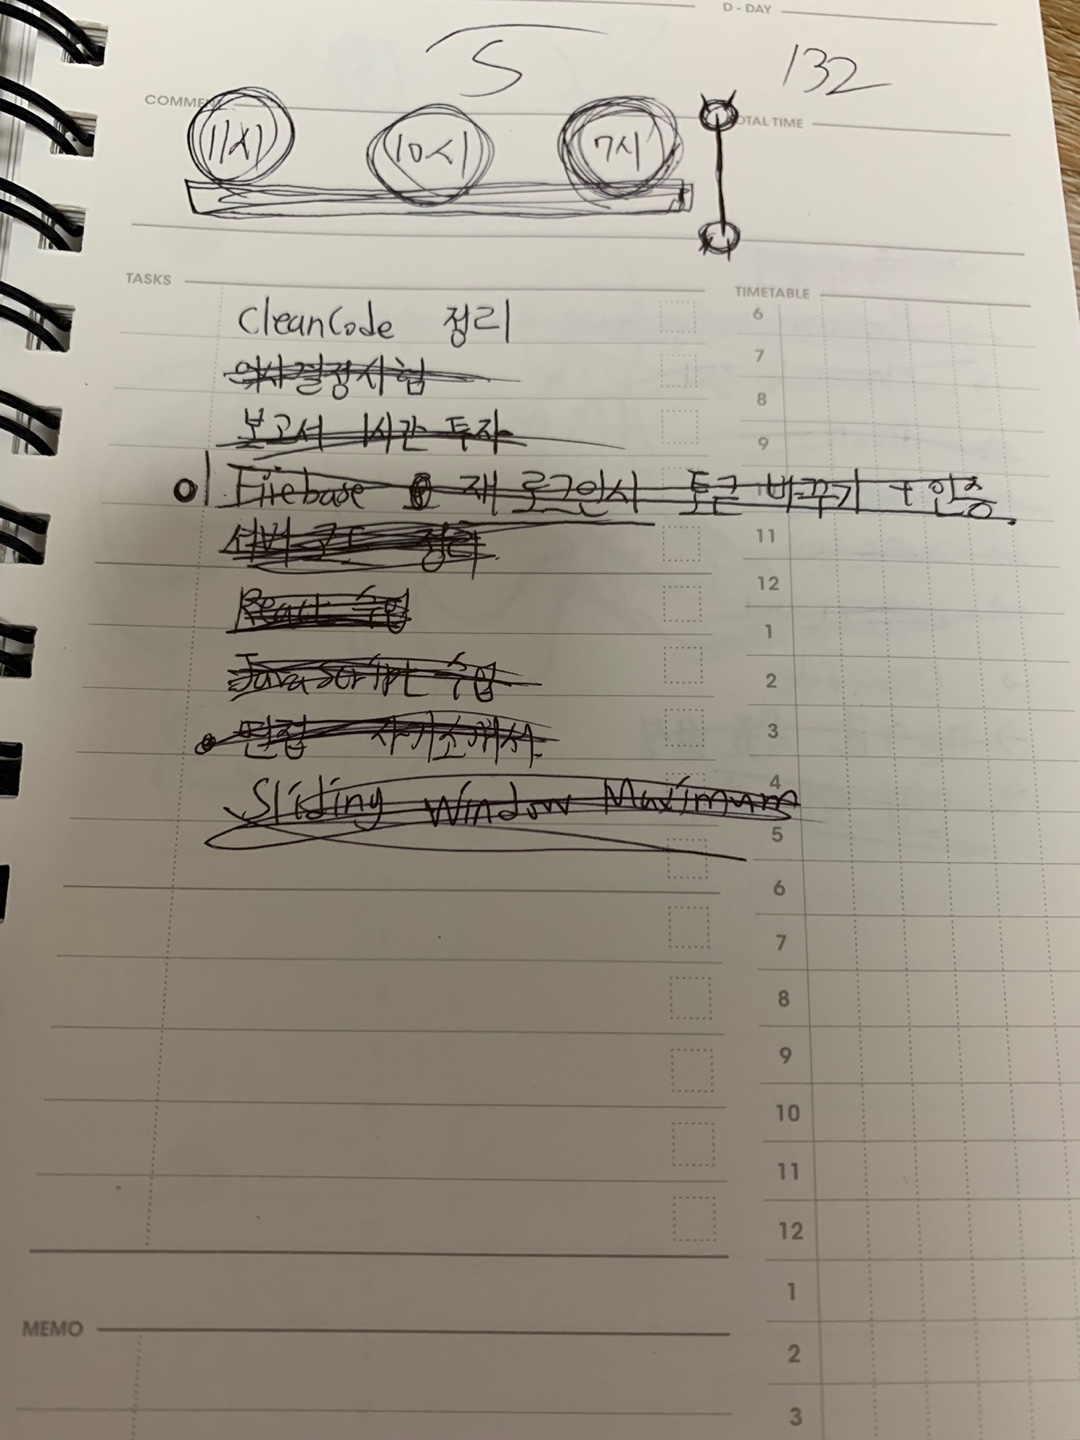 D - DAY
132
COMMENT
TOTAL TIME
11시
10시
7시
TASKS
TIMETABLE
CleanCode 정리
의사결정시험
보고서 1시간 투자
Firebase 재 로그인시 토큰 바꾸기 + 인증
서버 코드 정리
React 수업
JavaScript 수업
면접 자기소개서
Sliding Window Maximum
6
7
8
9
11
12
1
2
3
4
5
6
7
8
9
10
11
12
1
2
3
MEMO